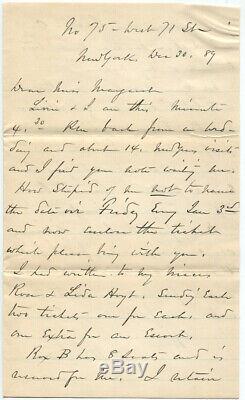 No 75 - West 71 St -
New York, Dec 30. 89
Dear Miss Margaret
Livie & I are this minute
4.30 back from
day and about 14. New Years visits
and I find your note waiting me.
How Stupid of me not to name
the date viz Friday Evg Jan 3rd
and now enclose the tickets
which please bring with you.
I had written to my Nieces
Rosa & Lida Hoyt. Sendg Each
two tickets one for Each. and
one Extra for an Escort.
Box B has 8 Seats and is
reserved for me. I retain
WorthPoint